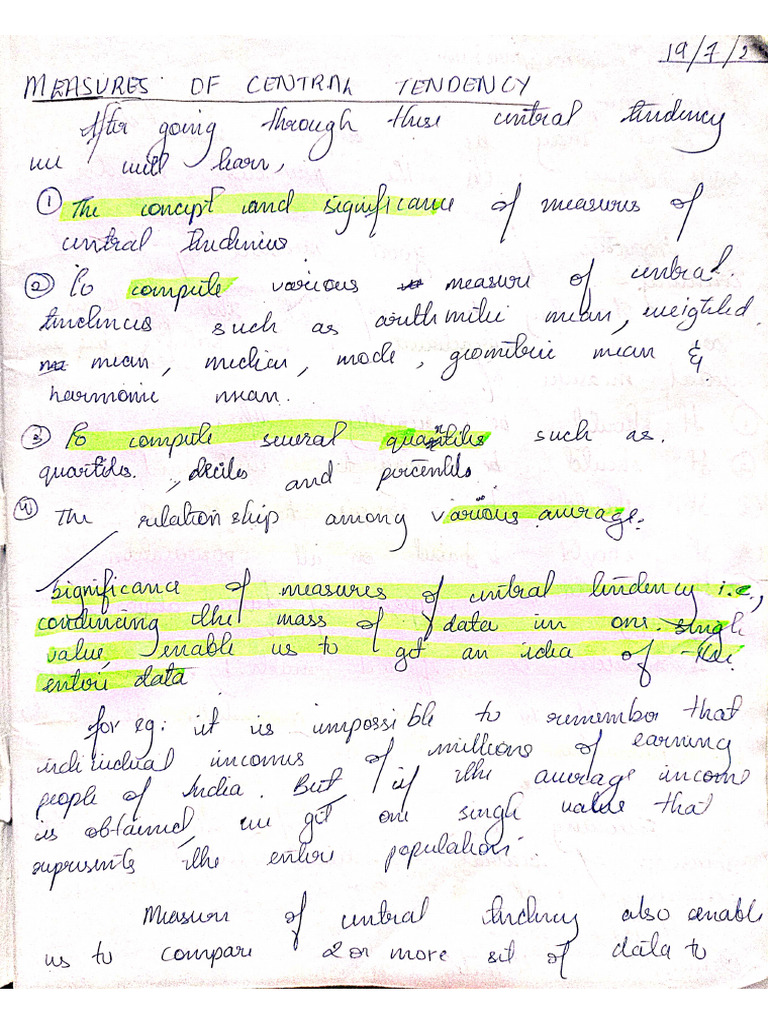 19/7/2
MEASURES OF CENTRAL TENDENCY
After going through these central tendency
we will learn,
① The concept and significance of measures of
central tendencies.
② To compute various measure of central
tendencies such as arithmetic mean, weighted
mean, median, mode, geometric mean &
harmonic mean.
③ To compute several quantiles such as.
quartiles, deciles and percentiles.
④ The relationship among various average.
Significance of measures of central tendency i.e,
condencing the mass of data in one single
value, enable us to get an idea of the
entire data.
for eg: it is impossible to remember that
individual incomes of millions of earning
people of India. But, if the average income
is obtained, we get one single value that
represents the entire population.
Measure of central tendency also enable
us to compare 2 or more set of data to